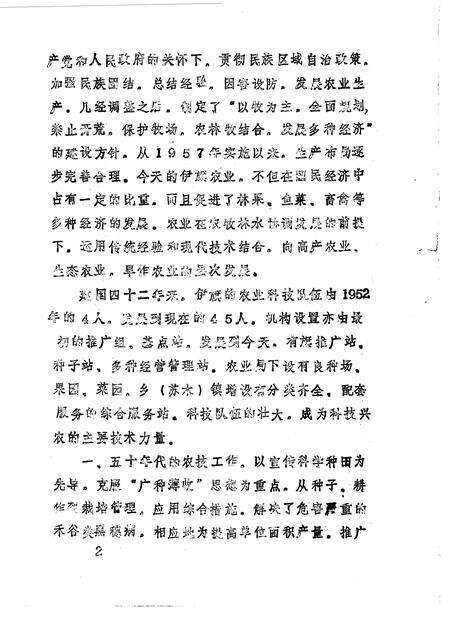 产党和人民政府的关怀下。贯彻民族区域自治政策。
加强民族团结。总结经验。因害设防。发展农业生
产。几经调整之后。制定了“以牧为主。全面规划,
禁止开荒。保护牧场。农林牧结合。发展多种经济”
的建设方针。从1957年实施以来。生产布局逐
步完善合理。今天的伊旗农业。不但在国民经济中
占有一定的比重。而且促进了林果、鱼菜、畜禽等
多种经济的发展。农业在农牧林水协调发展的前提
下。运用传统经验和现代技术结合。向高产农业、
生态农业。旱作农业的层次发展。
建国四十二年来。伊旗的农业科技队伍由1952
年的4人。发展到现在的45人。机构设置亦由最
初的推广组、基点站。发展到今天。有旗推广站。
种子站、多种经营管理站。农业局下设有良种场、
果园、菜园。乡(苏木)镇增设有分类齐全。配套
服务的综合服务站。科技队伍的壮大。成为科技兴
农的主要技术力量。
一、五十年代的农技工作。以宣传科学种田为
先导。克服“广种薄收”思想为重点。从种子、耕
作到栽培管理。应用综合措施。解决了危害严重的
禾谷类黑穗病。相应地为提高单位面积产量。推广
2